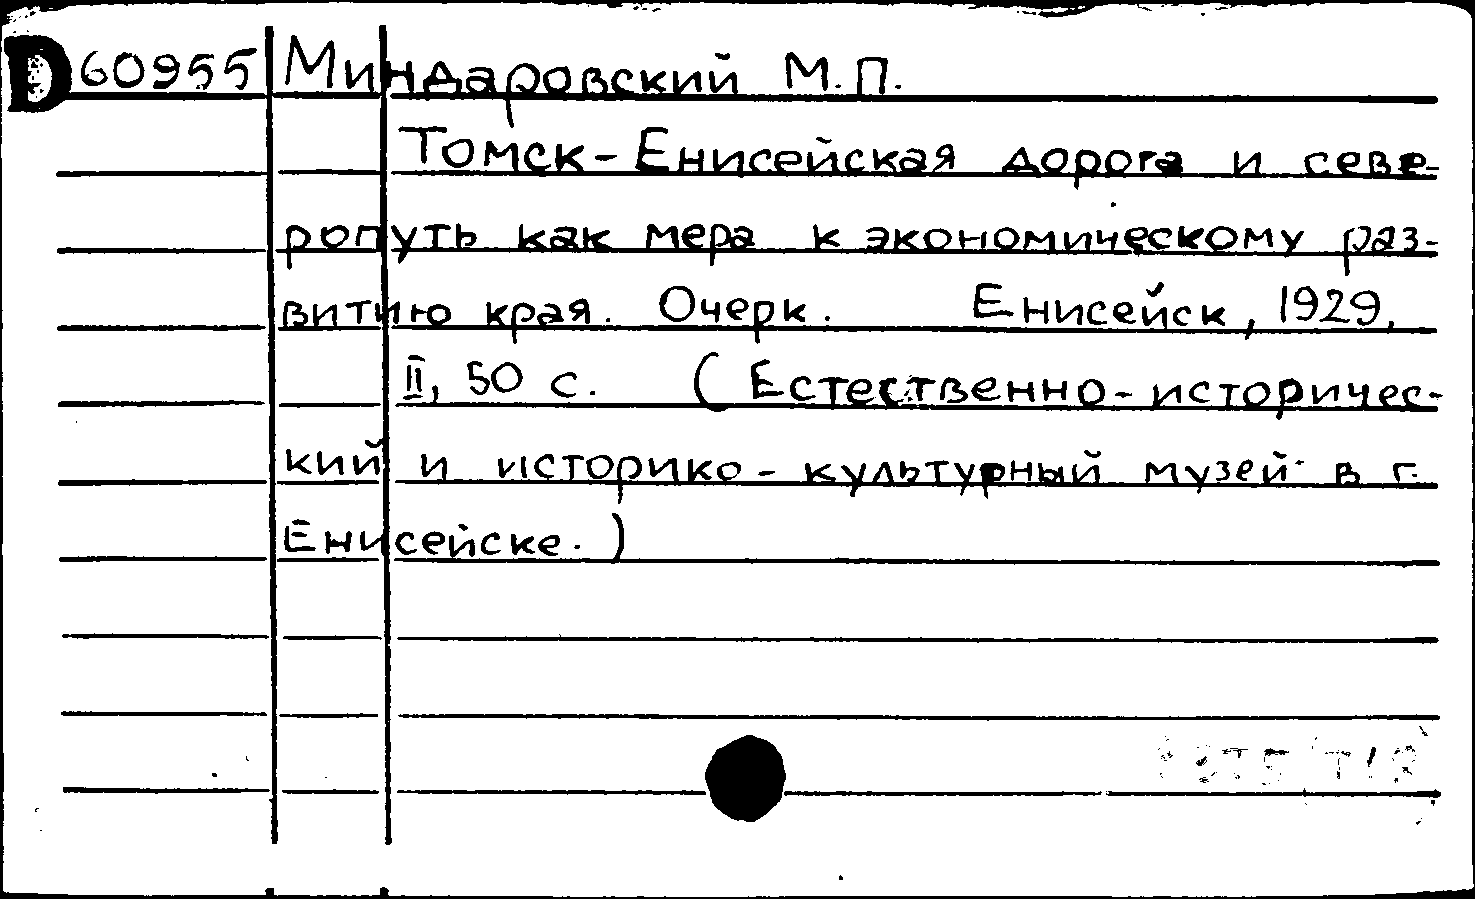 D 60955 Миндаровский М.П.
Томск-Енисейская дорога и севе-
ропуть как мера к экономическому раз-
витию края. Очерк. Енисейск, 1929.
II, 50 с. (Естественно-историчес-
кий и историко-культурный музей в г.
Енисейске.)